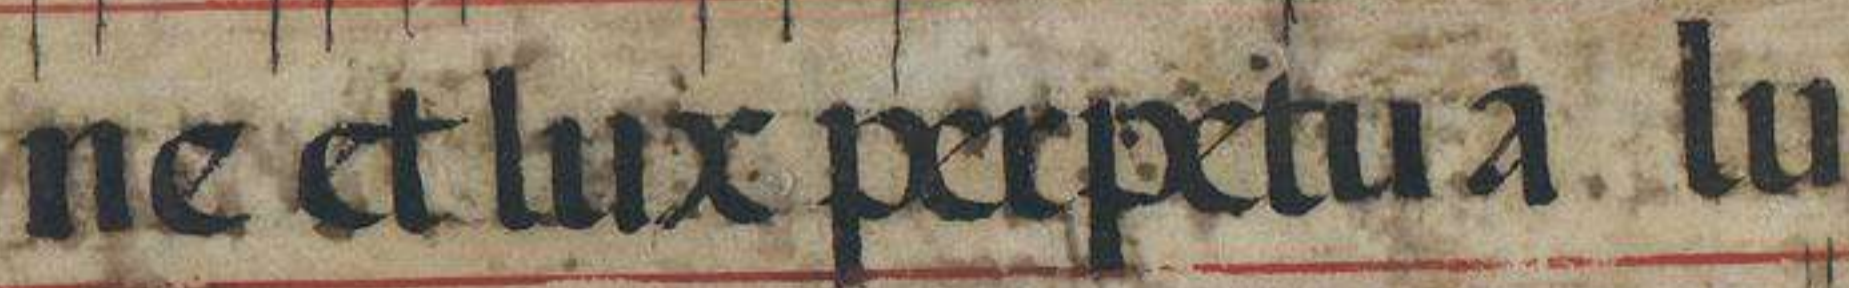 ne et lux perpetua lu